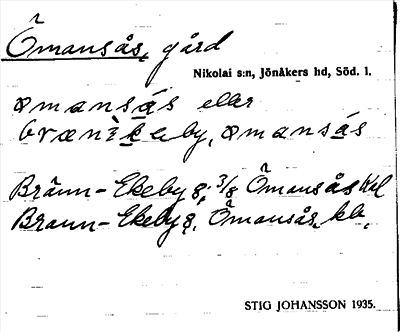 Ömansås, gård
Nikolai s:n, Jönåkers hd, Söd. l.
ømansás eller
bræn keby, ømansás
Bränn-Ekeby g. 3/8 Ömansås Kal
Braun-Ekeby g. Ömansås, kb.
STIG JOHANSSON 1935.